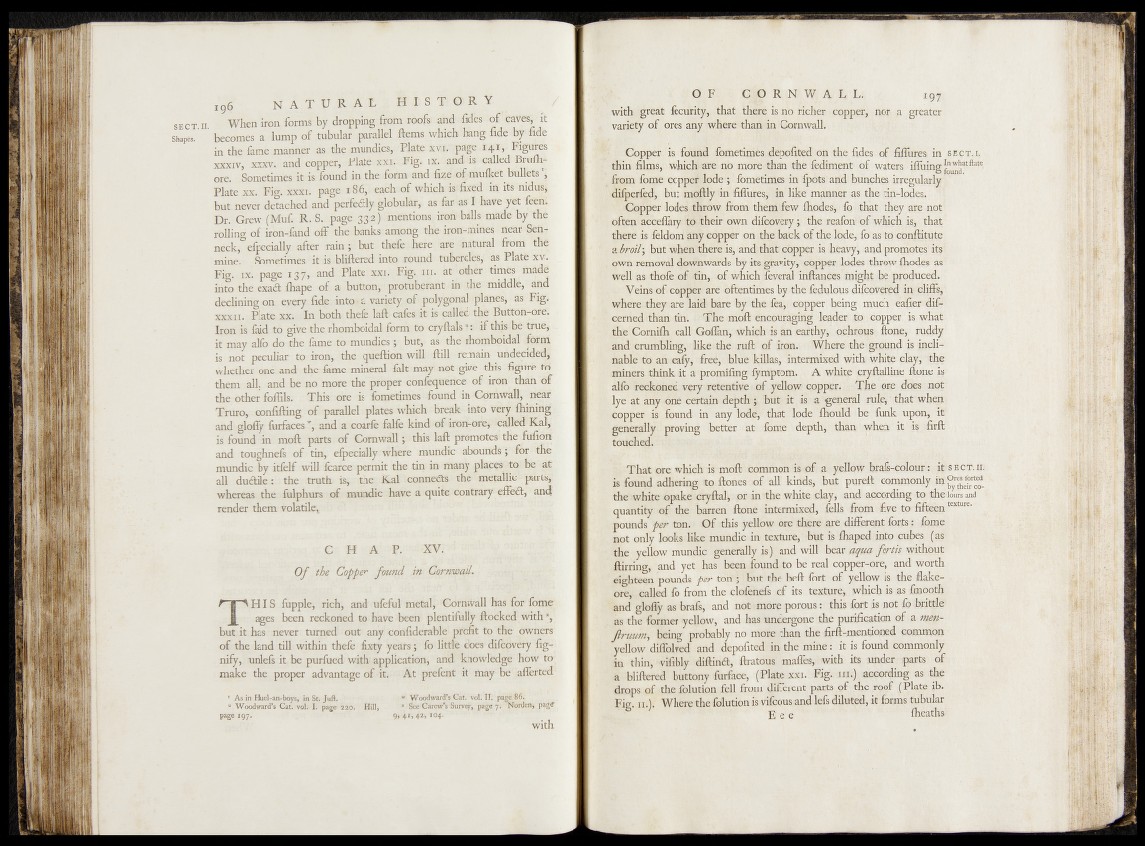 196 NATURAL HISTORY
SECT. II. When iron forms by dropping from roofs and ſides of caves, it
Shapes. becomes a lump of tubular parallel ſtems which hang ſide by ſide
in the ſame manner as the mundics, Plate XVI. page 141, Figures
XXXIV, XXXV. and copper, Plate XXI. Fig. IX. and is called Bruſh-
ore. Sometimes it is found in the form and ſize of muſket bullets ˢ,
Plate XX. Fig. XXXI. page 186, each of which is fixed in its nidus,
but never detached and perfectly globular, as far as I have yet ſeen.
Dr. Grew (Muſ. R. S. page 332) mentions iron balls made by the
rolling of iron-ſand off the banks among the iron-mines near Sen-
neck, eſpecially after rain; but theſe here are natural from the
mine. Sometimes it is bliſtered into round tubercles, as Plate XV.
Fig. IX. page 137, and Plate XXI. Fig. III. at other times made
into the exact ſhape of a button, protuberant in the middle, and
declining on every ſide into a variety of polygonal planes, as Fig.
XXXII. Plate XX. In both theſe laſt caſes it is called the Button-ore.
Iron is ſaid to give the rhomboidal form to cryſtals ᵗ: if this be true,
it may alſo do the ſame to mundics; but, as the rhomboidal form
is not peculiar to iron, the queſtion will ſtill remain undecided,
whether one and the ſame mineral ſalt may not give this figure to
them all, and be no more the proper conſequence of iron than of
the other foſſils. This ore is ſometimes found in Cornwall, near
Truro, conſiſting of parallel plates which break into very ſhining
and gloſſy ſurfaces ᵘ, and a coarſe falſe kind of iron-ore, called Kal,
is found in moſt parts of Cornwall; this laſt promotes the fuſion
and toughneſs of tin, eſpecially where mundic abounds; for the
mundic by itſelf will ſcarce permit the tin in many places to be at
all ductile: the truth is, the Kal connects the metallic parts,
whereas the ſulphurs of mundic have a quite contrary effect, and
render them volatile.
CHAP. XV.
Of the Copper found in Cornwall.
THIS ſupple, rich, and uſeful metal, Cornwall has for ſome
ages been reckoned to have been plentifully ſtocked with ˣ,
but it has never turned out any conſiderable profit to the owners
of the land till within theſe ſixty years; ſo little does diſcovery ſig-
nify, unleſs it be purſued with application, and knowledge how to
make the proper advantage of it. At preſent it may be aſſerted
ˢ As in Huel-an-boys, in St. Juſt.
ᵗ Woodward's Cat. vol. I. page 220. Hill,
page 197.
ᵘ Woodward's Cat. vol. II. page 86.
ˣ See Carew's Survey, page 7. Norden, page
9, 41, 42, 104.
with
OF CORNWALL. 197
with great ſecurity, that there is no richer copper, nor a greater
variety of ores any where than in Cornwall.
Copper is found ſometimes depoſited on the ſides of fiſſures in SECT. I.
thin films, which are no more than the ſediment of waters iſſuing In what ſtate found.
from ſome copper lode; ſometimes in ſpots and bunches irregularly
diſperſed, but moſtly in fiſſures, in like manner as the tin-lodes.
Copper lodes throw from them few ſhodes, ſo that they are not
often acceſſary to their own diſcovery; the reaſon of which is, that
there is ſeldom any copper on the back of the lode, ſo as to conſtitute
a broil; but when there is, and that copper is heavy, and promotes its
own removal downwards by its gravity, copper lodes throw ſhodes as
well as thoſe of tin, of which ſeveral inſtances might be produced.
Veins of copper are oftentimes by the ſedulous diſcovered in cliffs,
where they are laid bare by the ſea, copper being much eaſier diſ-
cerned than tin. The moſt encouraging leader to copper is what
the Corniſh call Goſſan, which is an earthy, ochrous ſtone, ruddy
and crumbling, like the ruſt of iron. Where the ground is incli-
nable to an eaſy, free, blue killas, intermixed with white clay, the
miners think it a promiſing ſymptom. A white cryſtalline ſtone is
alſo reckoned very retentive of yellow copper. The ore does not
lye at any one certain depth; but it is a general rule, that when
copper is found in any lode, that lode ſhould be ſunk upon, it
generally proving better at ſome depth, than when it is firſt
touched.
That ore which is moſt common is of a yellow braſs-colour: it SECT. II.
is found adhering to ſtones of all kinds, but pureſt commonly in Ores ſorted by their co-
the white opake cryſtal, or in the white clay, and according to the lours and
quantity of the barren ſtone intermixed, ſells from five to fifteen texture.
pounds per ton. Of this yellow ore there are different ſorts: ſome
not only looks like mundic in texture, but is ſhaped into cubes (as
the yellow mundic generally is) and will bear aqua fortis without
ſtirring, and yet has been found to be real copper-ore, and worth
eighteen pounds per ton; but the beſt ſort of yellow is the flake-
ore, called ſo from the cloſeneſs of its texture, which is as ſmooth
and gloſſy as braſs, and not more porous: this ſort is not ſo brittle
as the former yellow, and has undergone the purification of a men-
ſtruum, being probably no more than the firſt-mentioned common
yellow diſſolved and depoſited in the mine: it is found commonly
in thin, viſibly diſtinct, ſtratous maſſes, with its under parts of
a bliſtered buttony ſurface, (Plate XXI. Fig. III.) according as the
drops of the ſolution fell from different parts of the roof (Plate ib.
Fig. II.). Where the ſolution is viſcous and leſs diluted, it forms tubular
E e e ſheaths